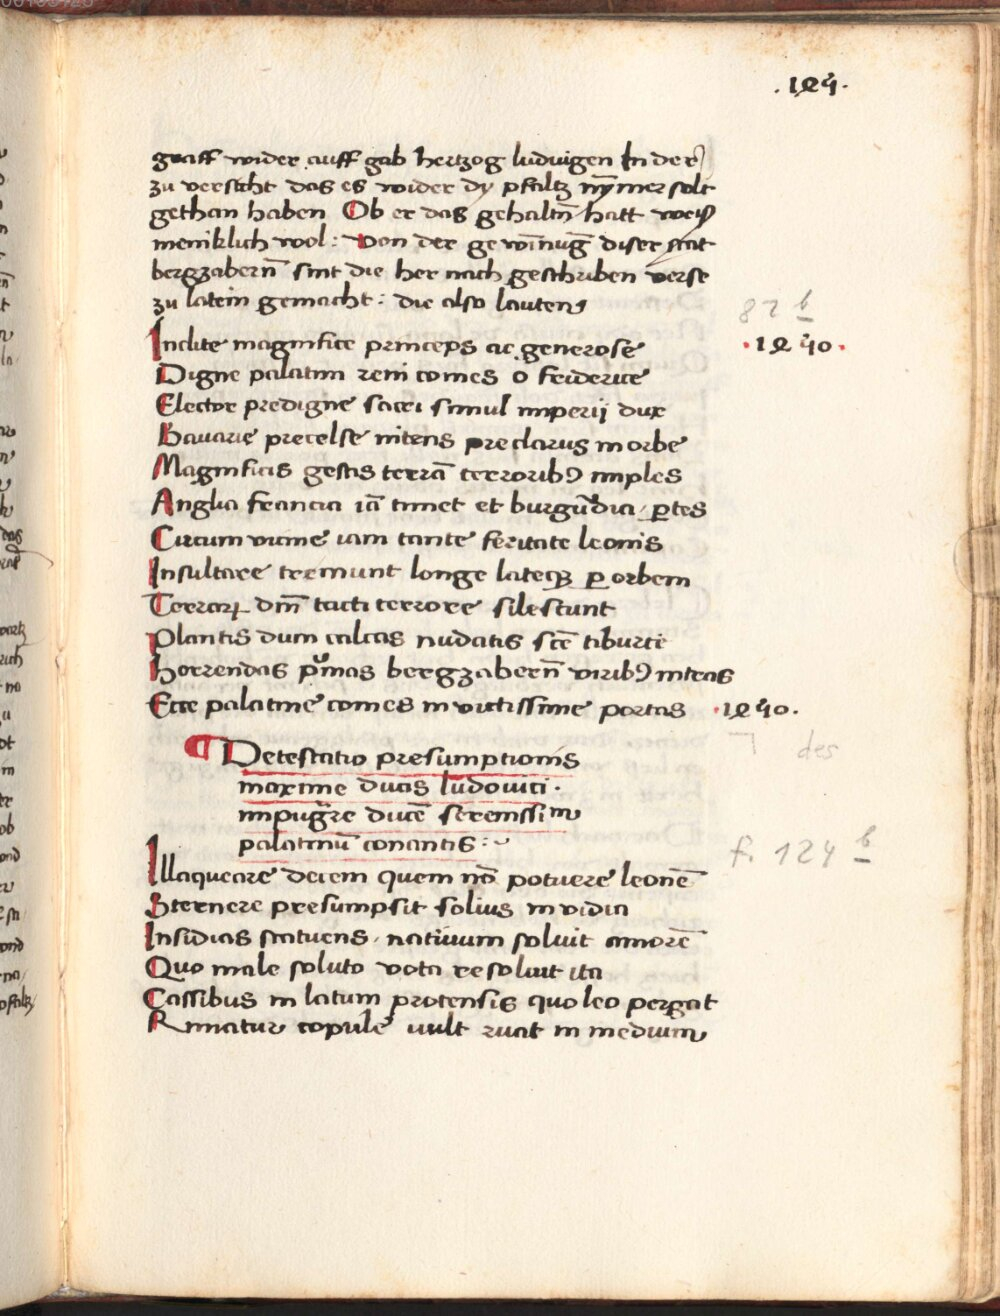 .125.
graff wider auff gab hertzog ludwigen In der
zu versicht das es wider dy pfaltz nymer solt
gethan haben Ob er das gehaltn̄ hatt weiß
meniklich wol : von der gewin̄uḡ diser stat
bergzabern̄ sint die her nach geschriben verse
zu latein gemacht : die also lauten
87 b
Inclite magnifice princeps ac generose
.1250.
Digne palatini reni comes o friderice
Elector predigne sacri simul imperij dux
Bauarie precelse nitens preclarus in orbe
Magnificis gestis terrā terroribꝰ imples
Anglia francia iā timet et burgūdia ꝑtes
Circum vicine iam tante feritate leonis
Insultare tremunt longe lateqꝫ ꝑ orbem
Terraꝝ dn̄i tacti terrore silescunt
Plantis dum calcas nudatis sc̄e tiburti
Horrendas primas bergzabern̄ viribꝰ intras
Ecce palatine comes inuictissime portas .1250.
des
¶ Detestatio presumptionis
maxime ducis ludouici .
impugnare ducē serenissimū
palatinū conantis :
f. 124 b
Illaqueare deciem quem nō potuere leonē
Sternere presumpsit solius inuidia
Insidias statuens, natiuum soluit amorē
Quo male soluto vota resoluit ita
Cassibus in latum protensis quo leo pergat
Rimatur copule vult ruat in medium